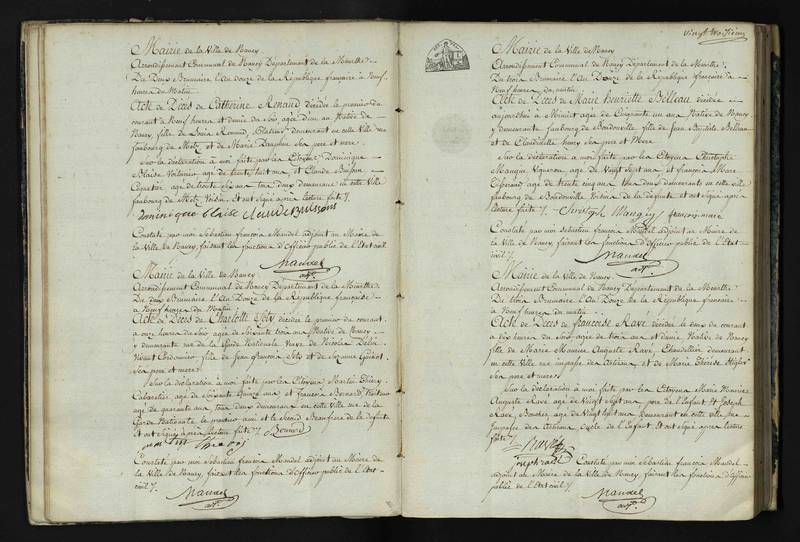 Mairie de la Ville de Nancy
Arrondissement Communal de Nancy Departement de la Meurthe
Du Deux Brumaire l'An douze de la République française à Neuf
heures du Matin
Acte de Décès de Catherine Renaud décédée le premier du
courant à Neuf heures et demie du soir agée d'un an Native de
Nancy, fille de Louis Renaud, demeurant en cette Ville
faubourg de Metz et de Marie ses pere et mere
Sur la déclaration à moi faite par les Citoyens Dominique
Blaise Voiturier agé de trente huit ans, et Claude Buisson
agé de trente six ans tous deux demeurans en cette Ville
faubourg de Metz Voisins. Et ont signé après lecture faite
Dominique blaise Claude Buisson
Constaté par moi Sebastien françois Mandel adjoint au Maire de
la Ville de Nancy, faisant les fonctions d'Officier public de l'Etat civil
Mandel
adjt.
Mairie de la Ville de Nancy
Arrondissement Communal de Nancy Departement de la Meurthe
Du deux Brumaire l'An Douze de la République française
à Neuf heures du Matin
Acte de Décès de Charlotte décédée le premier du courant
à onze heures du soir agée de soixante trois ans Native de Nancy
y demeurante rue de la Garde Nationale Veuve de Nicolas
Vivant Cordonnier fille de Jean françois et de Suzanne
ses pere et mere
Sur la déclaration à moi faite par les Citoyens Martin Thiery
Cabaretier, agé de soixante quinze ans et françois Bernard
agé de quarante ans tous deux demeurans en cette Ville rue de la
Garde Nationale, le premier ami et le second Beaufrere de la défunte
Et ont signé après lecture faite Bernard
Constaté par moi Sebastien françois Mandel adjoint au Maire de
la Ville de Nancy, faisant les fonctions d'Officier public de l'Etat
civil
Mandel
adjt.
Vingt troisieme
Mairie de la Ville de Nancy
Arrondissement Communal de Nancy Departement de la Meurthe
Du trois Brumaire l'An Douze de la République française à
Neuf heures du matin
Acte de Décès de Marie henriette Belleau décédée
aujourdhui à Minuit agée de Cinquante un ans Native de Nancy
y demeurante faubourg de Boudonville fille de Jean Baptiste Belleau
et de henry ses pere et Mere
Sur la déclaration à moi faite par les Citoyens Christophe
Mangin Vigneron, agé de Vingt sept ans et françois Marc
agé de trente cinq ans tous deux demeurans en cette ville
faubourg de Boudonville Voisins de la défunte et ont signé après
lecture faite Christophe Mangin françois marc
Constaté par moi Sebastien françois Mandel adjoint au Maire de
la Ville de Nancy, faisant les fonctions d'Officier public de l'Etat
civil
Mandel
adjt.
Mairie de la Ville de Nancy
Arrondissement Communal de Nancy Departement de la Meurthe
Du trois Brumaire l'An Douze de la République française
à Neuf heures du matin
Acte de Décès de Françoise Ravé décédée le deux du courant
à dix heures du soir agée de trois ans et demie Native de Nancy
fille de Marie Maurice Auguste Ravé, Chandellier demeurant
en cette Ville rue impasse des et de Marie Thérèse
ses pere et mere
Sur la déclaration à moi faite par les Citoyens Marie Maurice
Auguste Ravé, agé de Vingt sept ans, pere de l'Enfant et Joseph
Ravé, Boucher, agé de Vingt sept ans, demeurant en cette ville rue
impasse des Oncle de l'Enfant. Et ont signé après lecture
faite
Constaté par moi Sebastien françois Mandel
adjoint au Maire de la Ville de Nancy, faisant les fonctions d'officier
public de l'Etat civil
Mandel
adjt.